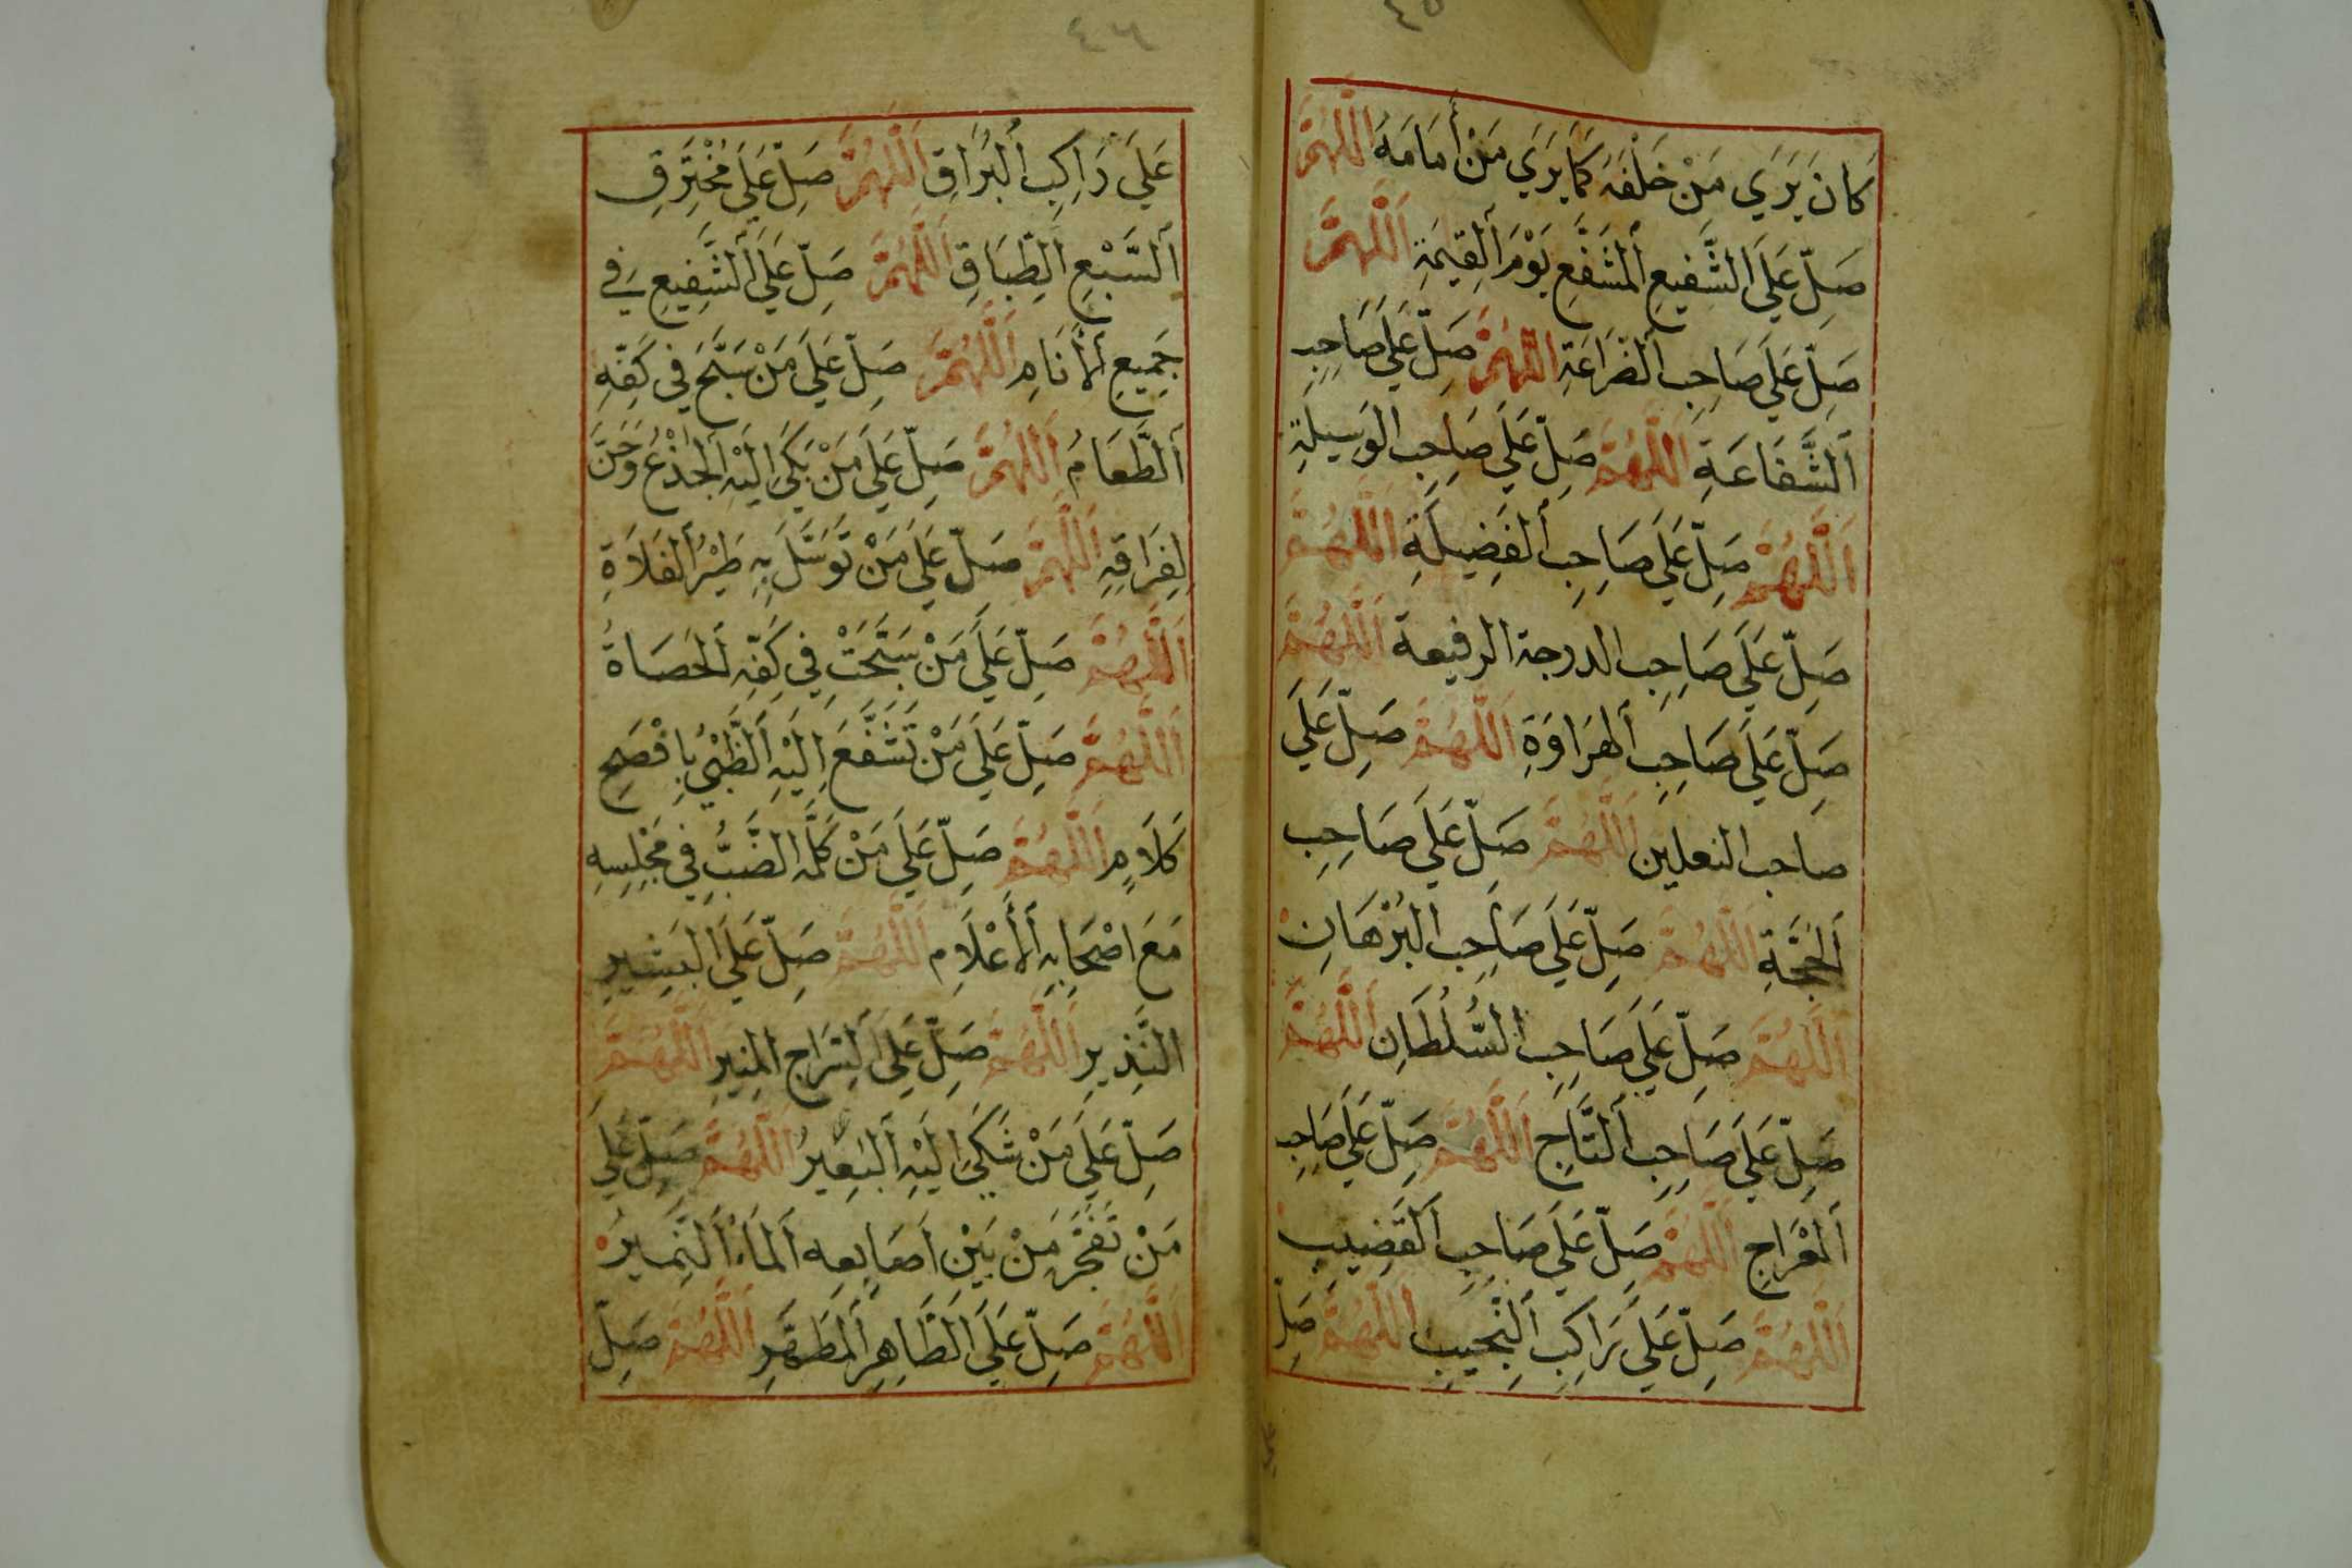 ٤٥
كَانَ يَرَي مَنْ خَلْفَهُ كَمَا يَرَي مَنْ أَمَامَهُ اَللّٰهُمَّ
صَلِّ عَلَي الشَّفِيعِ اَلْمُشَفَّعِ يَوْمَ اَلْقِيٰمَةِ اَللّٰهُمَّ
صَلِّ عَلَي صَاحِبِ اَلضَّرَاعَةِ اَللّٰهُمَّ صَلِّ عَلَي صَاحِبِ
اَلشَّفَاعَةِ اَللّٰهُمَّ صَلِّ عَلَي صَاحِبِ الْوَسِيلَةِ
اَللّٰهُمَّ صَلِّ عَلَي صَاحِبِ اَلْفَضِيلَةِ اَللّٰهُمَّ
صَلِّ عَلَي صَاحِبِ الدرجة الرفيعة اَللّٰهُمَّ
صَلِّ عَلَي صَاحِبِ اَلْهِرَاوَةِ اَللّٰهُمَّ صَلِّ عَلَي
صاحب النعلين اَللّٰهُمَّ صَلِّ عَلَي صَاحِبِ
اَلْحُجَّةِ اَللّٰهُمَّ صَلِّ عَلَي صَاحِبِ الْبُرْهَانِ
اَللّٰهُمَّ صَلِّ عَلَي صَاحِبِ السُّلْطَانِ اَللّٰهُمَّ
صَلِّ عَلَي صَاحِبِ اَلتَّاجِ اَللّٰهُمَّ صَلِّ عَلَي صَاحِبِ
اَلْمِعْرَاجِ اَللّٰهُمَّ صَلِّ عَلَي صَاحِبِ اَلْقَضِيبِ
اَللّٰهُمَّ صَلِّ عَلَي رَاكِبِ اَلنَّجِيبِ اَللّٰهُمَّ صَلِّ
٤٦
عَلَي رَاكِبِ اَلْبُرَاقِ اَللّٰهُمَّ صَلِّ عَلَي مُخْتَرِقِ
اَلسَّبْعِ اَلطِّبَاقِ اَللّٰهُمَّ صَلِّ عَلَي اَلشَّفِيعِ فِي
جَمِيعِ اَلْأَنَامِ اَللّٰهُمَّ صَلِّ عَلَي مَنْ سَبَّحَ فِي كَفِّهِ
اَلطَّعَامُ اَللّٰهُمَّ صَلِّ عَلَي مَنْ بَكَي اِلَيْهِ اَلْجِذْعُ وَحَنَّ
لِفِرَاقِهِ اَللّٰهُمَّ صَلِّ عَلَي مَنْ تَوَسَّلَ بِهِ طَيْرُ اَلْفَلَاةِ
اَللّٰهُمَّ صَلِّ عَلَي مَنْ سَبَّحَتْ فِي كَفِّهِ اَلْحَصَاةُ
اَللّٰهُمَّ صَلِّ عَلَي مَنْ تَشَفَّعَ اِلَيْهِ اَلظَّبْيُ بِافْصَحِ
كَلَامٍ اَللّٰهُمَّ صَلِّ عَلَي مَنْ كَلَّمَهُ الضَّبُّ فِي مَجْلِسِهِ
مَعَ اصْحَابِهِ اَلْأَعْلَامِ اَللّٰهُمَّ صَلِّ عَلَي اَلْبَشِيرِ
النَّذِيرِ اَللّٰهُمَّ صَلِّ عَلَي اَلسِّرَاجِ الْمُنِيرِ اَللّٰهُمَّ
صَلِّ عَلَي مَنْ شَكَي اِلَيْهِ اَلْبَعِيرُ اَللّٰهُمَّ صَلِّ عَلَي
مَنْ تَفَجَّرَ مَنْ بَيْنِ اَصَابِعِه اَلْمَاءُ اَلنَّمِيرُ
اَللّٰهُمَّ صَلِّ عَلَي اَلطَّاهِرِ اَلْمُطَهَّرِ اَللّٰهُمَّ صَلِّ